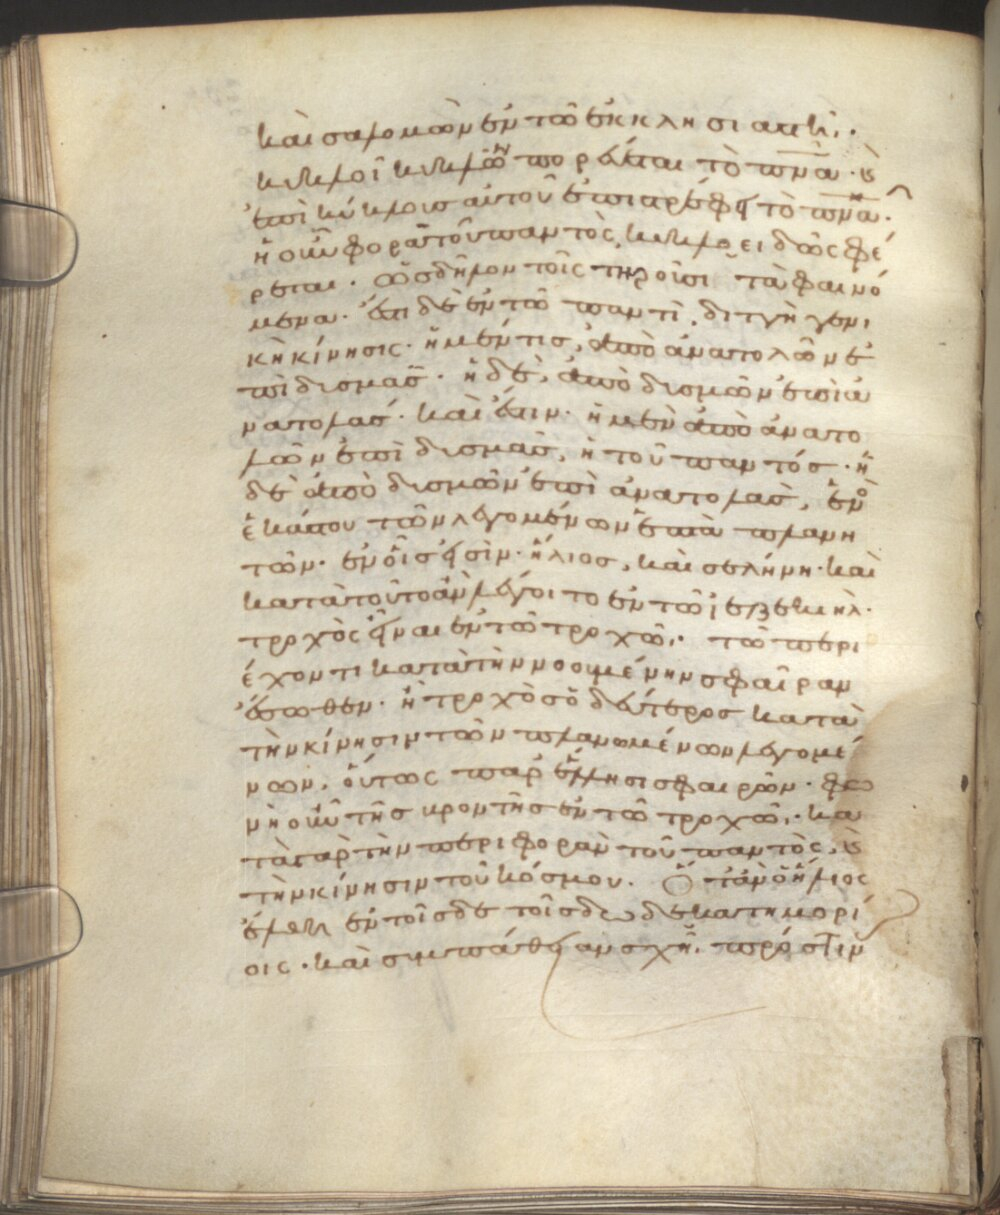 καὶ σαλομὼν ἐν τῶ ἐκκλησιαστῆ·
κυκλοῖ κυκλῶν πορεύεται τὸ πνᾶ· ἐ
ἐπὶ κύκλους αὐτοῦ ἐπιστρέφει τὸ πνᾶ·
ἡ οὖν φορὰ τοῦ παντὸς, κυκλοειδῶς φέ
ρεται· ὡς δῆλον τοῖς τηροῦσι τὰ φαινό
μενα· ἔτι δὲ ἐν τῶ παντὶ, διττὴ γενι
κὴ κίνησις· ἡ μέν τις, ἀπὸ ἀνατολῶν ἐ
πὶ δυσμάς· ἡ δὲ, ἀπὸ δυσμῶν ἐπὶ ἀ
νατολάς· καὶ ἔστιν· ἡ μὲν ἀπὸ ἀνατο
λῶν ἐπὶ δυσμὰς, ἡ τοῦ παντός· ἡ
δὲ ἀπὸ δυσμῶν ἐπὶ ἀνατολὰς,
ἑκάστου τῶν λεγομένων ἑπτὰ πλανη
τῶν· ἐν οἷς εἰσὶν· ἥλιος, καὶ σελήνη· καὶ
κατὰ τοῦτο ἂν λέγοι τὸ ἐν τῶ ἰεζεκιὴλ·
τροχὸς εἶναι ἐν τῶ τροχῶ· τῶ περι
έχοντι κατὰ τὴν νοουμένην σφαῖραν
ἔσωθεν· ἡ τροχὸς ὁ δεύτερος κατὰ
τὴν κίνησιν τῶν πλανωμένων λεγομέ
νων, οὕτως παρ ἕλλησι σφαιρῶν· φω
νὴ οὖν τῆς βροντῆς ἐν τῶ τροχῶ· κα
τὰ γὰρ τὴν περιφορὰν τοῦ παντὸς, ἐ
τὴν κίνησιν τοῦ κόσμου. Ὅταν ὁ ἥλιος
ἔλθη ἐν τοῖσδε τοῖσδε δεκατημορί
οις· καὶ συμπάθειαν σχῆ· πρός τιν